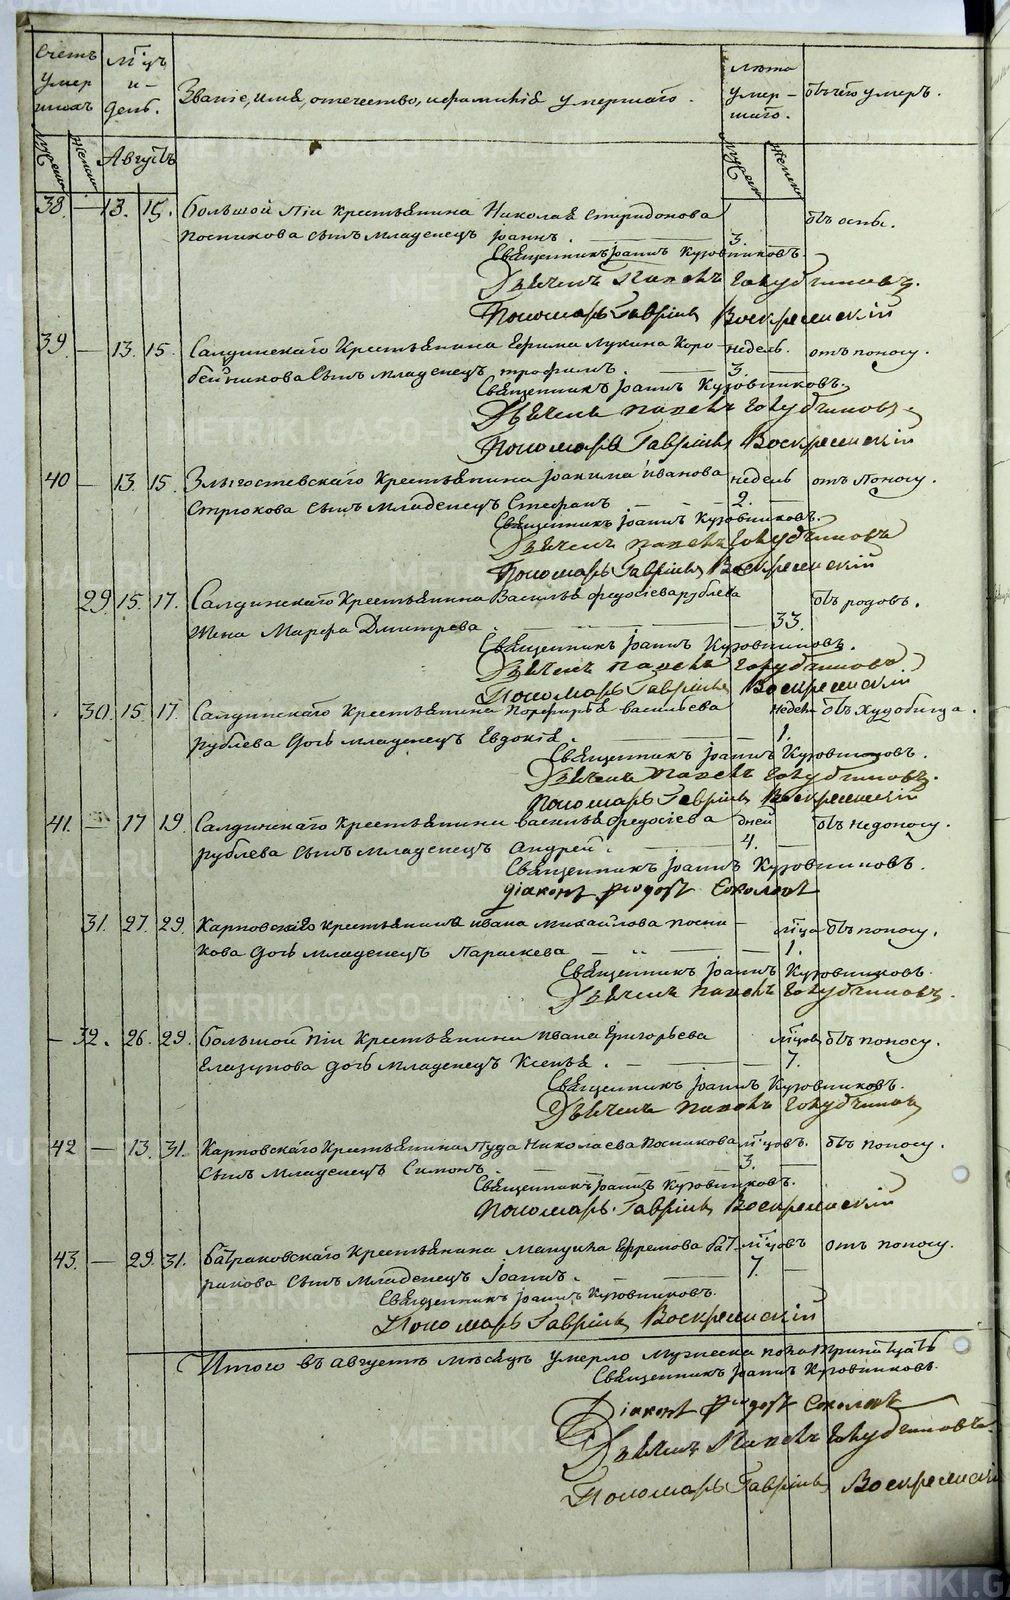 Счетъ умер шихъ
Мцъ и день.
Званіе, имя, отечество, и фамилія умершаго.
Лѣта умер- шаго.
Отъ чего умеръ.
Мужеск Женск Августъ Мужеск Женск
38. — 13. 15. Большой Ели Крестьянина Николая Спиридонова 1 Отъ оспы.
Посникова сынъ младенецъ Іоаннъ. 3.
Священникъ Іоаннъ Кузовниковъ.
Дьячекъ Павелъ Голубчиковъ.
Пономарь Гавріилъ Воскресенскій
39. — 13. 15. Салдинскаго Крестьянина Ефима Лукина Коро- недель. отъ поносу.
бейникова сынъ младенецъ Трофимъ. 3.
Священникъ Іоаннъ Кузовниковъ.
Дьячекъ Павелъ Голубчиковъ.
Пономарь Гавріилъ Воскресенскій
40 — 13. 15. Злыгостевскаго Крестьянина Іоакима Иванова недель отъ поносу.
Стрюкова сынъ младенецъ Стефанъ 2.
Священникъ Іоаннъ Кузовниковъ.
Дьячекъ Павелъ Голубчиковъ
Пономарь Гавріилъ Воскресенскій
29. 15. 17. Салдинскаго Крестьянина Василья Федосіева рублева Отъ родовъ.
Жена Марфа Дмитрева 33.
Священникъ Іоаннъ Кузовниковъ.
Дьячекъ Павелъ Голубчиковъ
Пономарь Гавріилъ Воскресенскій
30. 15. 17. Салдинскаго Крестьянина Порфирья васильева недели Отъ худобища.
рублева дочь младенецъ Евдокія. 1.
Священникъ Іоаннъ Кузовниковъ.
Дьячекъ Павелъ Голубчиковъ.
Пономарь Гавріилъ Воскресенскій
41. — 17 19. Салдинскаго Крестьянина василья федосіева дней Отъ недоносу.
рублева сынъ младенецъ Андрей. 4.
Священникъ Іоаннъ Кузовниковъ.
діаконъ Федотъ Соколовъ
31. 27. 29. Карповскаго крестьянина ивана михайлова посни- мца Отъ поносу.
кова дочь младенецъ Параскева 1.
Священникъ Іоаннъ Кузовниковъ.
Дьячекъ Павелъ Голубчиковъ.
— 32. 26. 29. Большой Ели Крестьянина ивана Григорьева мцовъ Отъ поносу.
Елазунова дочь младенецъ Ксенья. 7.
Священникъ Іоаннъ Кузовниковъ.
Дьячекъ Павелъ Голубчиковъ
42 — 13. 31. Карповскаго Крестьянина Пуда Николаева Посникова мцовъ. Отъ поносу.
сынъ младенецъ Симонъ. 3.
Священникъ Іоаннъ Кузовниковъ.
Пономарь Гавріилъ Воскресенскій
43. — 29. 31. Батраковскаго Крестьянина Мануила Ефремова Бат- мцовъ Отъ поносу.
ракова сынъ младенецъ Іоаннъ. 7.
Священникъ Іоаннъ Кузовниковъ.
Пономарь Гавріилъ Воскресенскій
Итого въ августѣ мѣсяцѣ умерло мужеска пола тринатцать
Священникъ Іоаннъ Кузовниковъ.
Діаконъ Федотъ Соколовъ
Дьячекъ Павелъ Голубчиковъ.
Пономарь Гавріилъ Воскресенскій
METRIKI.GASO-URAL.RU